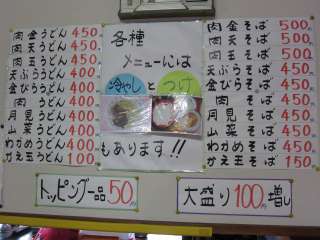 肉金うどん 450
肉天うどん 450
肉玉うどん 450
天ぷらうどん 400
金ぴらうどん 400
肉うどん 400
月見うどん 400
山菜うどん 400
わかめうどん 400
かえ玉うどん 100
各種
メニューには
冷やしとつけ
もあります!!
肉金そば 500
肉天そば 500
肉玉そば 500
天ぷらそば 450
金ぴらそば 450
肉そば 450
月見そば 450
山菜そば 450
わかめそば 450
かえ玉そば 150
トッピング一品50円
大盛り100円増し